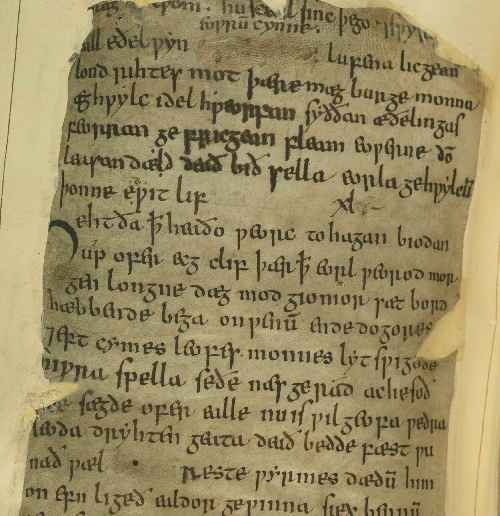 hu sceal sinc þego ⁊ swyrd
eowrū cynne.
eall eðel wyn lufen alicgean
lond rihtes mot þære mæg burge monna
æghwylc idel hweorfan syððan æðelingas
feorran ge fricgean fleam eowerne dō
leasan dæd deað bið sella eorla gehwylcū
þonne edwit lif xl
Heht ða ꝥ heaðo weorc to hagan biodan
up ofer ecg clif þær ꝥ eorl weorod mor
gen longne dæg mod giomor sæt bord
hæbbende bega on wenū ende dogores
⁊ eft cymes leofes monnes lyt swigode
niwra spella se ðe næs gerad ac he soð
sægde ofer ealle nu is wil geofa wedra
leoda dryhten geata deað bedde fæst wu
nað wæl reste wyrmes dædū him
on efn ligeð ealdor gewinna siex bennū